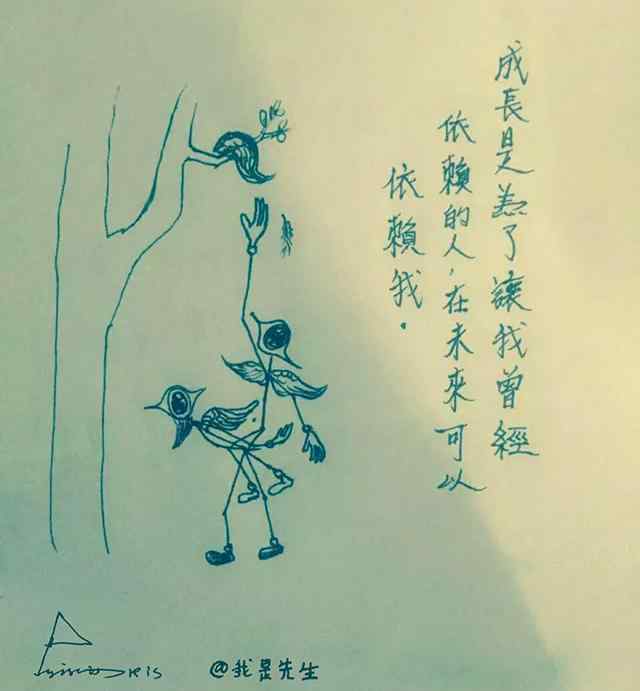 成長是為了讓我曾經
依賴的人,在未來可以
依賴我.
@我是先生